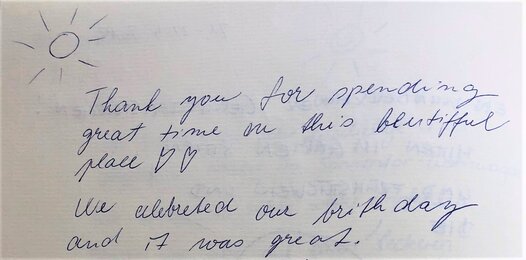 Thank you for spending
great time on this beutifful
place ♡♡
We celebreted our brithday
and it was great.